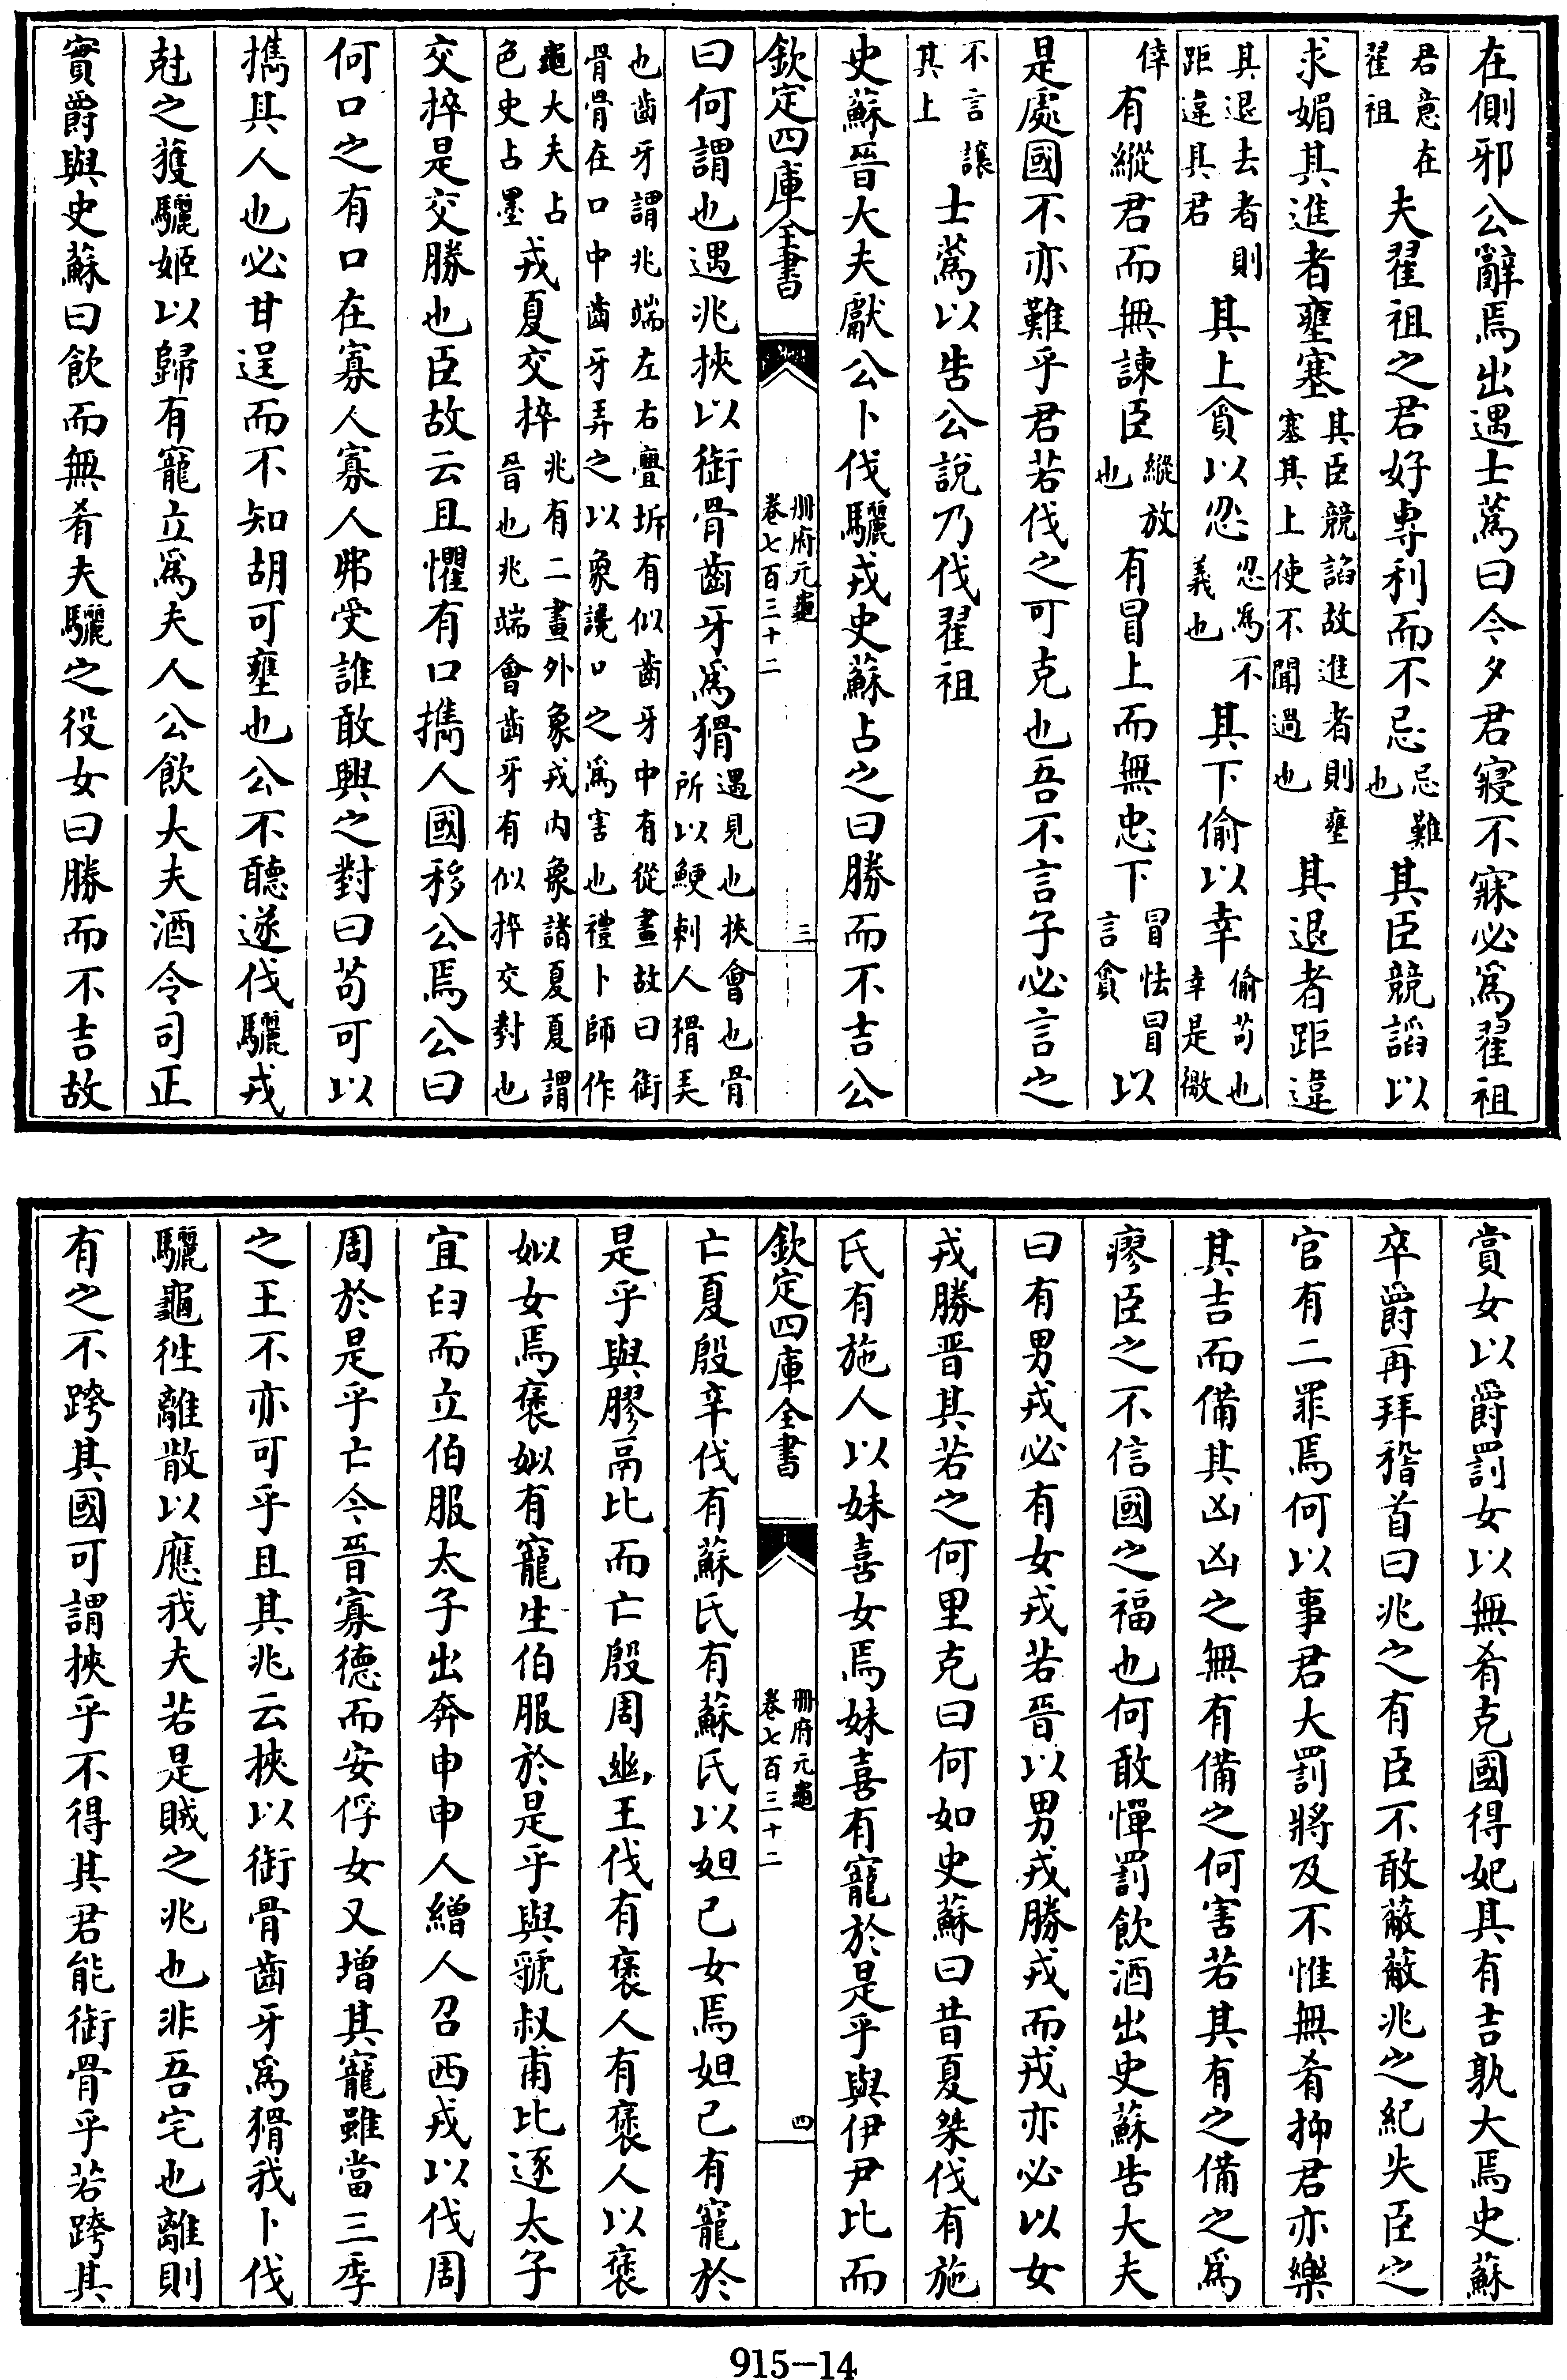 在側邪公辭焉出遇士蒍曰今夕君寢不寐必為翟祖
君意在翟祖夫翟祖之君好專利而不忌忌難也其臣競諂以
求媚其進者壅塞其臣競諂故進者則壅塞其上使不聞過也其退者距違
其退去者則距違其君其上貪以忍忍為不義也其下偷以幸偷苟也幸是徼
倖有縱君而無諫臣縱放也有冒上而無忠下冒怯冒言貪以
是處國不亦難乎君若伐之可克也吾不言子必言之
不言讓其上士蒍以告公說乃伐翟祖
史蘇晉大夫獻公卜伐驪戎史蘇占之曰勝而不吉公
欽定四庫全書
冊府元龜
卷七百三十二
三
曰何謂也遇兆挾以銜骨齒牙為猾遇見也挾會也骨所以鯁刺人猾弄
也齒牙謂兆端左右舋坼有似齒牙中有從畫故曰銜骨骨在口中齒牙弄之以象讒口之為害也禮卜師作
龜大夫占色史占墨戎夏交捽兆有二畫外象戎內象諸夏夏謂晉也兆端會齒牙有似捽交對也
交捽是交勝也臣故云且懼有口攜人國移公焉公曰
何口之有口在寡人寡人弗受誰敢興之對曰苟可以
攜其人也必甘逞而不知胡可壅也公不聽遂伐驪戎
尅之獲驪姬以歸有寵立為夫人公飲大夫酒令司正
實爵與史蘇曰飲而無肴夫驪之役女曰勝而不吉故
賞女以爵罰女以無肴克國得妃其有吉孰大焉史蘇
卒爵再拜稽首曰兆之有臣不敢蔽蔽兆之紀失臣之
官有二罪焉何以事君大罰將及不惟無肴抑君亦樂
其吉而備其凶凶之無有備之何害若其有之備之為
瘳臣之不信國之福也何敢憚罰飲酒出史蘇告大夫
曰有男戎必有女戎若晉以男戎勝戎而戎亦必以女
戎勝晉其若之何里克曰何如史蘇曰昔夏桀伐有施
氏有施人以妹喜女焉妹喜有寵於是乎與伊尹比而
欽定四庫全書
冊府元龜
卷七百三十二
四
亡夏殷辛伐有蘇氏有蘇氏以妲己女焉妲己有寵於
是乎與膠鬲比而亡殷周幽王伐有褒人有褒人以褒
姒女焉褒姒有寵生伯服於是乎與虢叔甫比逐太子
宜臼而立伯服太子出奔申申人繒人召西戎以伐周
周於是乎亡今晉寡德而安俘女又增其寵雖當三季
之王不亦可乎且其兆云挾以銜骨齒牙為猾我卜伐
驪龜徃離散以應我夫若是賊之兆也非吾宅也離則
有之不跨其國可謂挾乎不得其君能銜骨乎若跨其
915-14